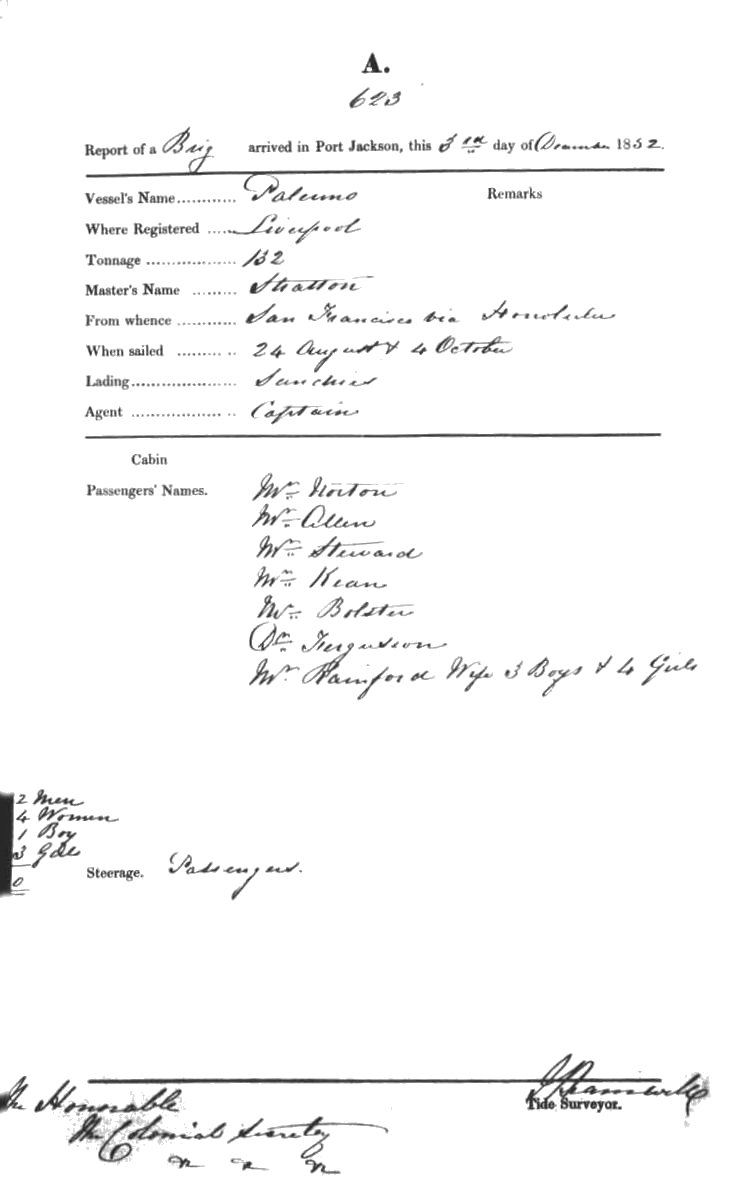 A.
623
Report of a Brig arrived in Port Jackson, this 3rd day of December 1852.
Vessel's Name............ Palermo Remarks
Where Registered ...... Liverpool
Tonnage .................. 132
Master's Name ......... Stratton
From whence ............ San Francisco via Honolulu
When sailed ........... 24 August & 4 October
Lading..................... Sundries
Agent .................... Captain
Cabin
Passengers' Names. Mr Norton
Mr Allen
Mr Steward
Mr Kean
Mr Bolster
Dr Ferguson
Mr Rainford Wife 3 Boys & 4 Girls
2 Men
4 Women
1 Boy
3 Gals
0
Steerage. Passengers.
Tide Surveyor.
The Honorable
The Colonial Secrety